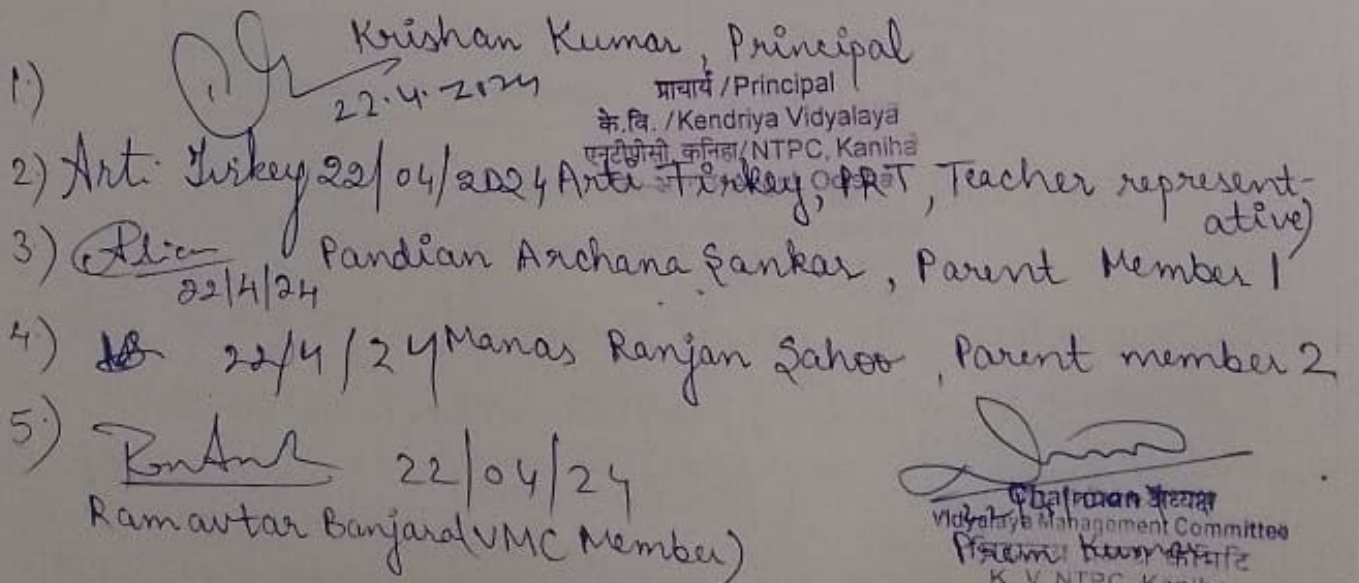 1.) Krishan Kumar, Principal
22.4.2024
प्राचार्य / Principal
के.वि. / Kendriya Vidyalaya
एनटीपीसी, कनिहा / NTPC, Kaniha
2) Arti Tirkey 22/04/2024 Arti Tirkey, PRT, Teacher represent-
ative)
3) Pandian Archana Sankar, Parent Member 1
22/4/24
4.) 22/4/24 Manas Ranjan Sahoo, Parent member 2
5.) 22/04/24
Ramavtar Banjara (VMC Member)
Chairman अध्यक्ष
Vidyalaya Management Committee
K. V. NTPC, Kaniha